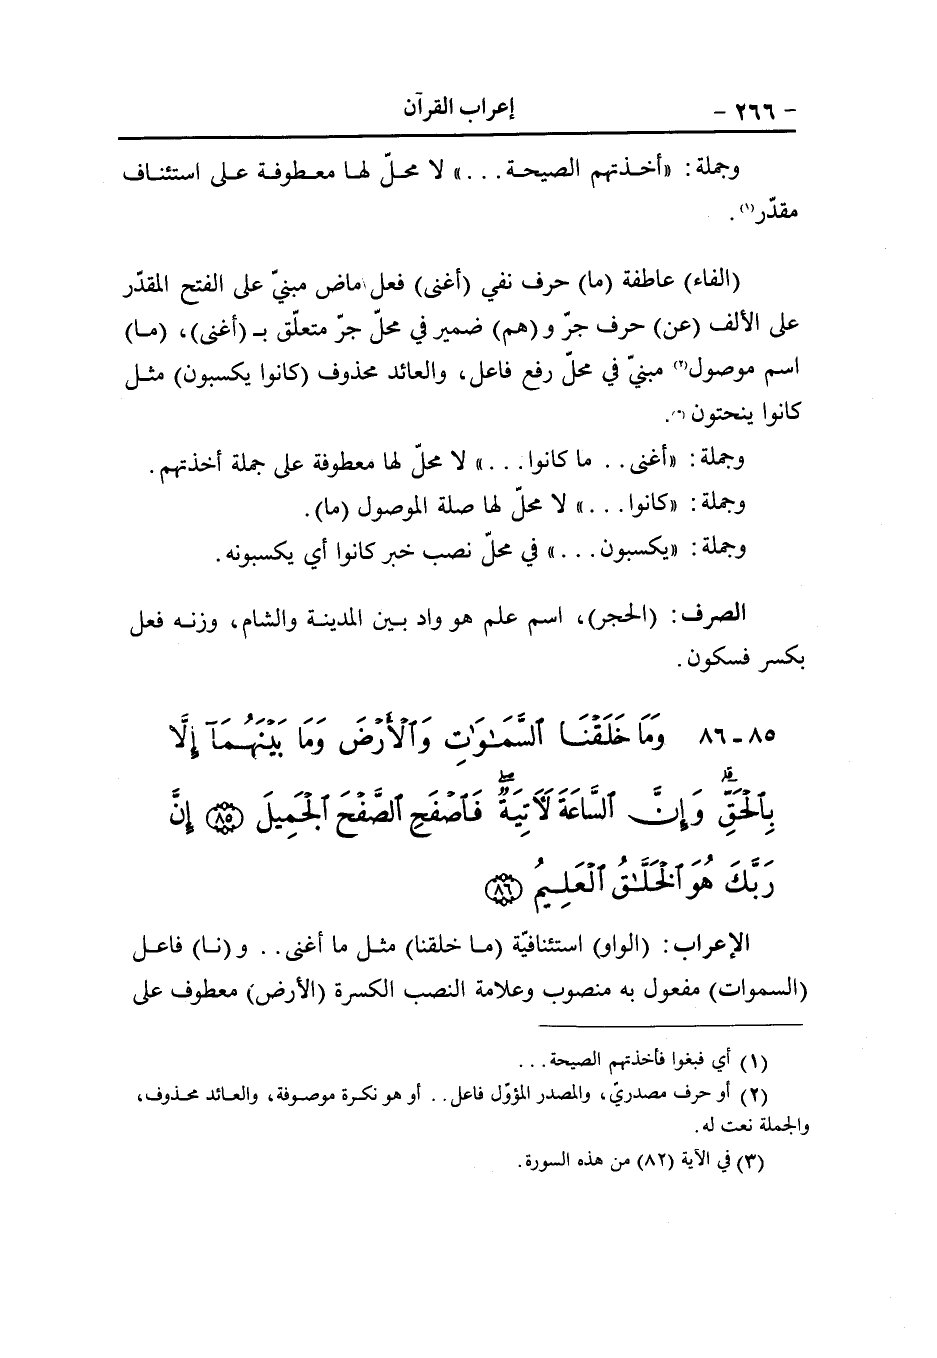 - ٢٦٦ - إعراب القرآن
وجملة: «أخـذتهم الصيحـة . . .» لا محلّ لهـا معـطوفـة عـلى استئنـاف
مقدّر(١).
(الفاء) عاطفة (ما) حرف نفي (أغنى) فعل ماض مبنيّ على الفتح المقدّر
على الألف (عن) حرف جرّ و(هم) ضمير في محلّ جرّ متعلّق بـ (أغنى)، (مـا)
اسم موصول(٢) مبنيّ في محلّ رفع فاعل، والعائد محذوف (كانوا يكسبون) مثـل
كانوا ينحتون (٣).
وجملة: «أغنى . . ما كانوا . . .» لا محلّ لها معطوفة على جملة أخذتهم.
وجملة: «كانوا . . .» لا محلّ لها صلة الموصول (ما).
وجملة: «يكسبون . . .» في محلّ نصب خبر كانوا أي يكسبونه.
الصرف: (الحجر)، اسم علم هو واد بـين المدينـة والشام، وزنـه فعل
بكسر فسكون.
٨٥ - ٨٦ وَمَا خَلَقْنَا ٱلسَّمَـٰوَٰتِ وَٱلْأَرْضَ وَمَا بَيْنَهُمَآ إِلَّا
بِٱلْحَقِّ ۗ وَإِنَّ ٱلسَّاعَةَ لَآتِيَةٌ ۖ فَٱصْفَحِ ٱلصَّفْحَ ٱلْجَمِيلَ ﴿٨٥﴾ إِنَّ
رَبَّكَ هُوَ ٱلْخَلَّـٰقُ ٱلْعَلِيمُ ﴿٨٦﴾
الإعراب: (الواو) استئنافيّة (مـا خلقنا) مثـل ما أغنى . . و(نـا) فاعـل
(السموات) مفعول به منصوب وعلامة النصب الكسرة (الأرض) معطوف على
(١) أي فبغوا فأخذتهم الصيحة . . .
(٢) أو حرف مصدريّ، والمصدر المؤوّل فاعل . . أو هو نكـرة موصـوفة، والعـائد محـذوف،
والجملة نعت له.
(٣) في الآية (٨٢) من هذه السورة.